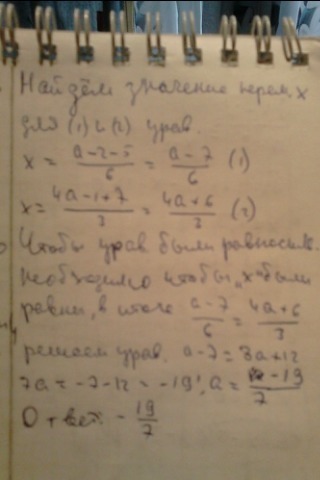 Найдём значение перем. x
для (1) и (2) урав.
x = a-2-5/6 = a-7/6 (1)
x = 4a-1+7/3 = 4a+6/3 (2)
Чтобы урав были равносил.
необходимо чтобы "x" были
равны, в итоге a-7/6 = 4a+6/3
решаем урав. a-7 = 8a+12
7a = -7-12 = -19; a = -19/7
Ответ: -19/7